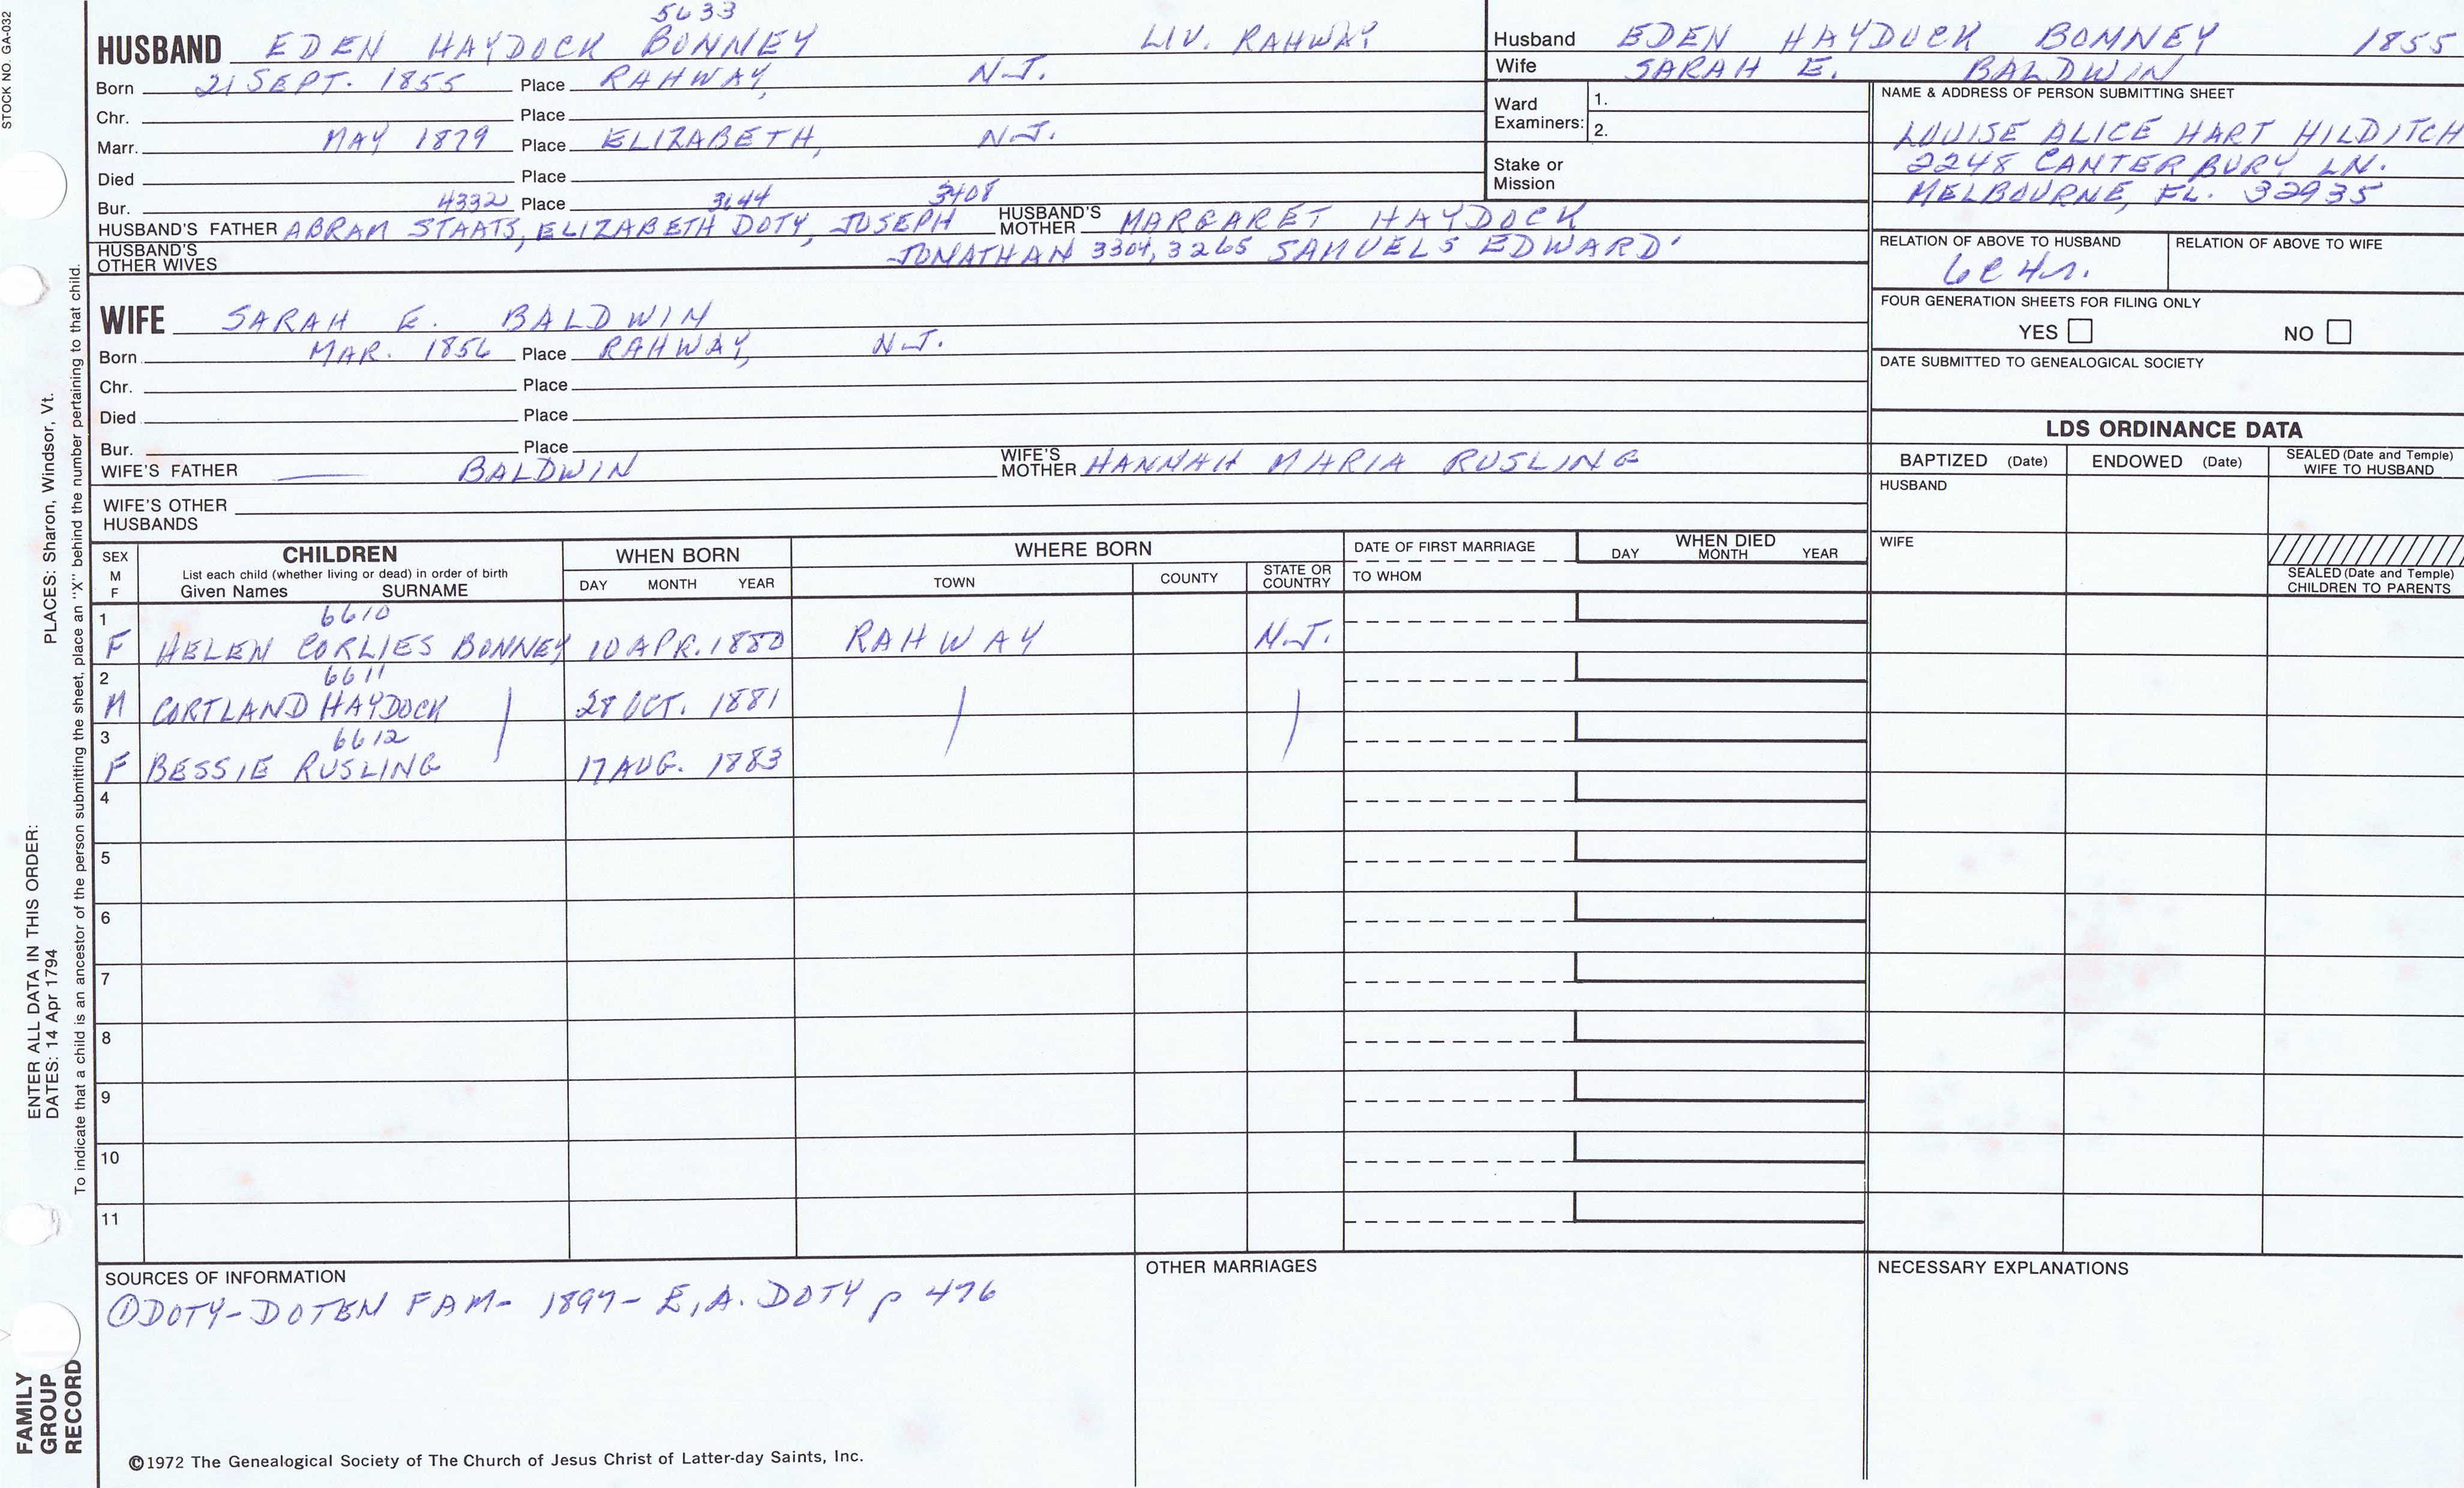 STOCK NO. GA-032
5633
HUSBAND EDEN HAYDOCK BONNEY LIV. RAHWAY
Born 21 SEPT. 1855 Place RAHWAY, N.J.
Chr. Place
Marr. MAY 1879 Place ELIZABETH, N.J.
Died Place
Bur. 4332 Place 3644 3408
HUSBAND'S FATHER ABRAM STAATS, ELIZABETH DOTY, JOSEPH HUSBAND'S MOTHER MARGARET HAYDOCK
HUSBAND'S OTHER WIVES JONATHAN 3304, 3265 SAMUELS EDWARD'
WIFE SARAH E. BALDWIN
Born MAR. 1856 Place RAHWAY, N.J.
Chr. Place
Died Place
Bur. Place
WIFE'S FATHER BALDWIN WIFE'S MOTHER HANNAH MARIA RUSLING
WIFE'S OTHER HUSBANDS
Husband EDEN HAYDOCK BONNEY 1855
Wife SARAH E. BALDWIN
Ward Examiners: 1.
2.
Stake or Mission
NAME & ADDRESS OF PERSON SUBMITTING SHEET
LOUISE ALICE HART HILDITCH
2248 CANTERBURY LN.
MELBOURNE, FL. 32935
RELATION OF ABOVE TO HUSBAND RELATION OF ABOVE TO WIFE
6C4r.
FOUR GENERATION SHEETS FOR FILING ONLY
YES NO
DATE SUBMITTED TO GENEALOGICAL SOCIETY
LDS ORDINANCE DATA
BAPTIZED (Date) ENDOWED (Date) SEALED (Date and Temple) WIFE TO HUSBAND
HUSBAND
WIFE
SEALED (Date and Temple) CHILDREN TO PARENTS
SEX M F CHILDREN WHEN BORN WHERE BORN DATE OF FIRST MARRIAGE WHEN DIED
List each child (whether living or dead) in order of birth
Given Names SURNAME DAY MONTH YEAR TOWN COUNTY STATE OR COUNTRY TO WHOM DAY MONTH YEAR
6610
1 F HELEN CORLIES BONNEY 10 APR. 1880 RAHWAY N.J.
6611
2 M CORTLAND HAYDOCK 28 OCT. 1881
6612
3 F BESSIE RUSLING 17 AUG. 1883
4
5
6
7
8
9
10
11
SOURCES OF INFORMATION OTHER MARRIAGES NECESSARY EXPLANATIONS
① DOTY-DOTEN FAM- 1897- E.A. DOTY p 476
©1972 The Genealogical Society of The Church of Jesus Christ of Latter-day Saints, Inc.
FAMILY GROUP RECORD
ENTER ALL DATA IN THIS ORDER:
DATES: 14 Apr 1794 PLACES: Sharon, Windsor, Vt.
To indicate that a child is an ancestor of the person submitting the sheet, place an "X" behind the number pertaining to that child.